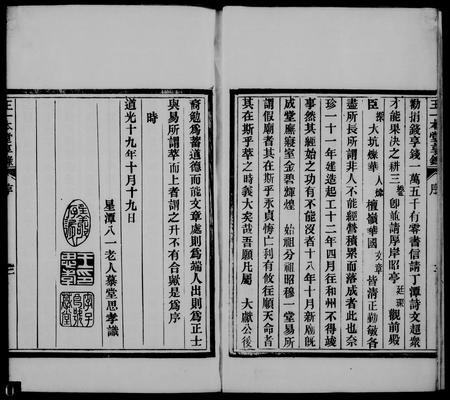 勸捐錢享錢一萬五千有零書信請丁潭詩文趙衆
才能果決之耕三卽並請厚岸昭亭廷環觀前殿
臣衆大坑燦華人檀嶺華國文章皆清正勤敏各
盡所長所謂非人不能經營積累而落成者此也奈
珍一十一年建造起工十二年四月往和州不得竣
事然其經始之功有不能沒者十八年十月新廟旣
成堂廡寢室金碧輝煌始祖分祖昭穆一堂易所
謂假廟者其在斯乎永貞悔亡利有攸往順天命者
其在斯乎萃之時義大矣哉吾願凡屬大獻公後
裔勉爲蓄道德而能文章處則爲端人出則爲正士
與易所謂萃而上者謂之升不有合歟是爲序
時
道光十九年十月十九日
星潭八一老人慕堂思孝識